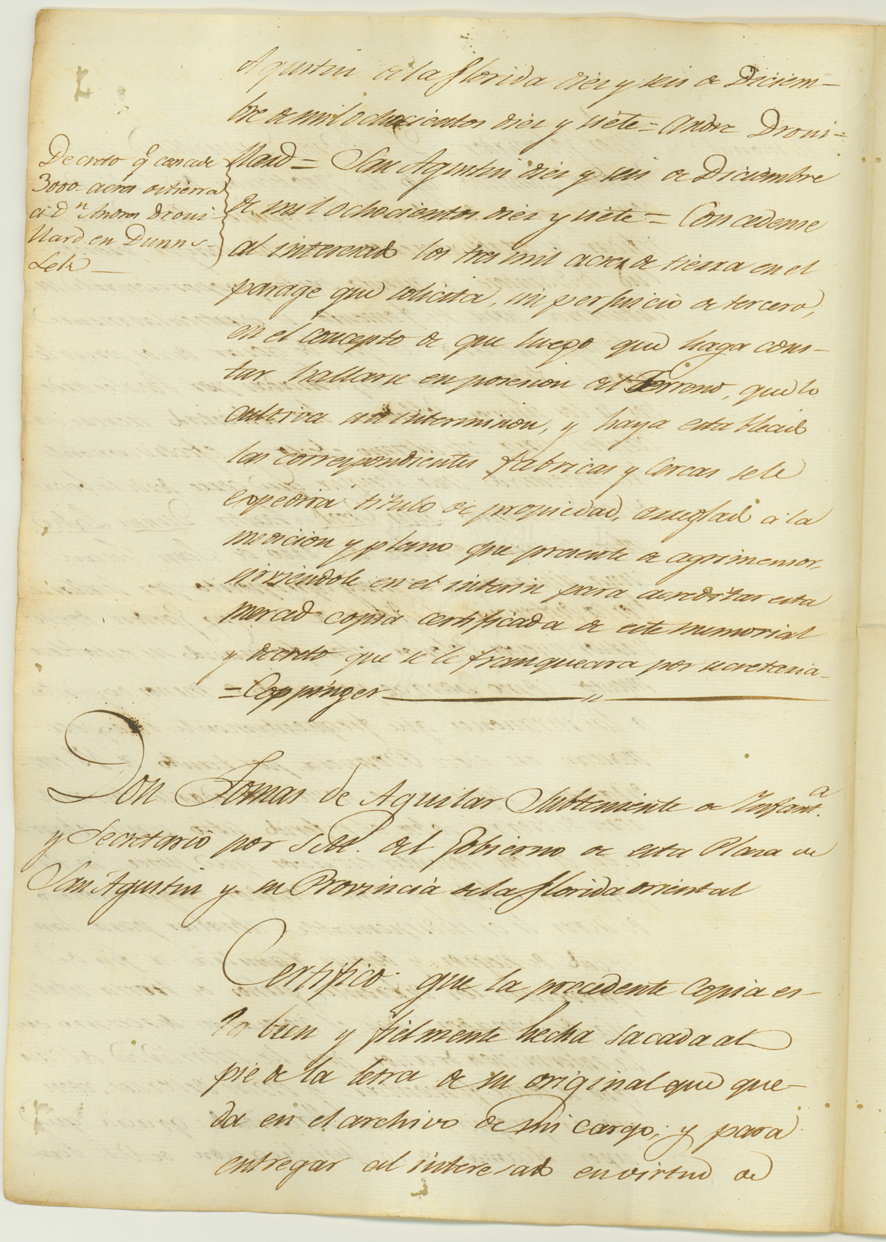 Agustin de la florida diez y seis de Diciem-
bre de mil ochocientos diez y siete = Andre Droui-
llard = San Agustin diez y seis de Diciembre
de mil ochocientos diez y siete = Concedense
al interesado los tres mil acres de tierra en el
parage que solicita, sin perjuicio de tercero,
en el concepto de que luego que haga cons-
tar hallarse en posesion del Terreno, que lo
cultiva sin intermision, y haya establecido
las correspondientes fabricas y cercas se le
expedirá titulo de propiedad, arreglado á la
medicion y plano que presente de agrimensor
sirviendole en el interin para acreditar esta
merced copia certificada de este memorial
y decreto que se le franqueara por secretaria
= Coppinger
Decreto q.e concede
3000 acres de tierra
á D.n Andres Droui-
llard en Dunns-
Lek
Don Tomas de Aguilar Subteniente de Infant.a
y Secretario por S.M. del Gobierno de esta Plaza de
San Agustin y su Provincia de la florida oriental
Certifico: que la precedente copia es-
ta bien y fielmente hecha sacada al
pie de la letra de su original que que-
da en el archivo de mi cargo; y para
entregar al interesado en virtud de